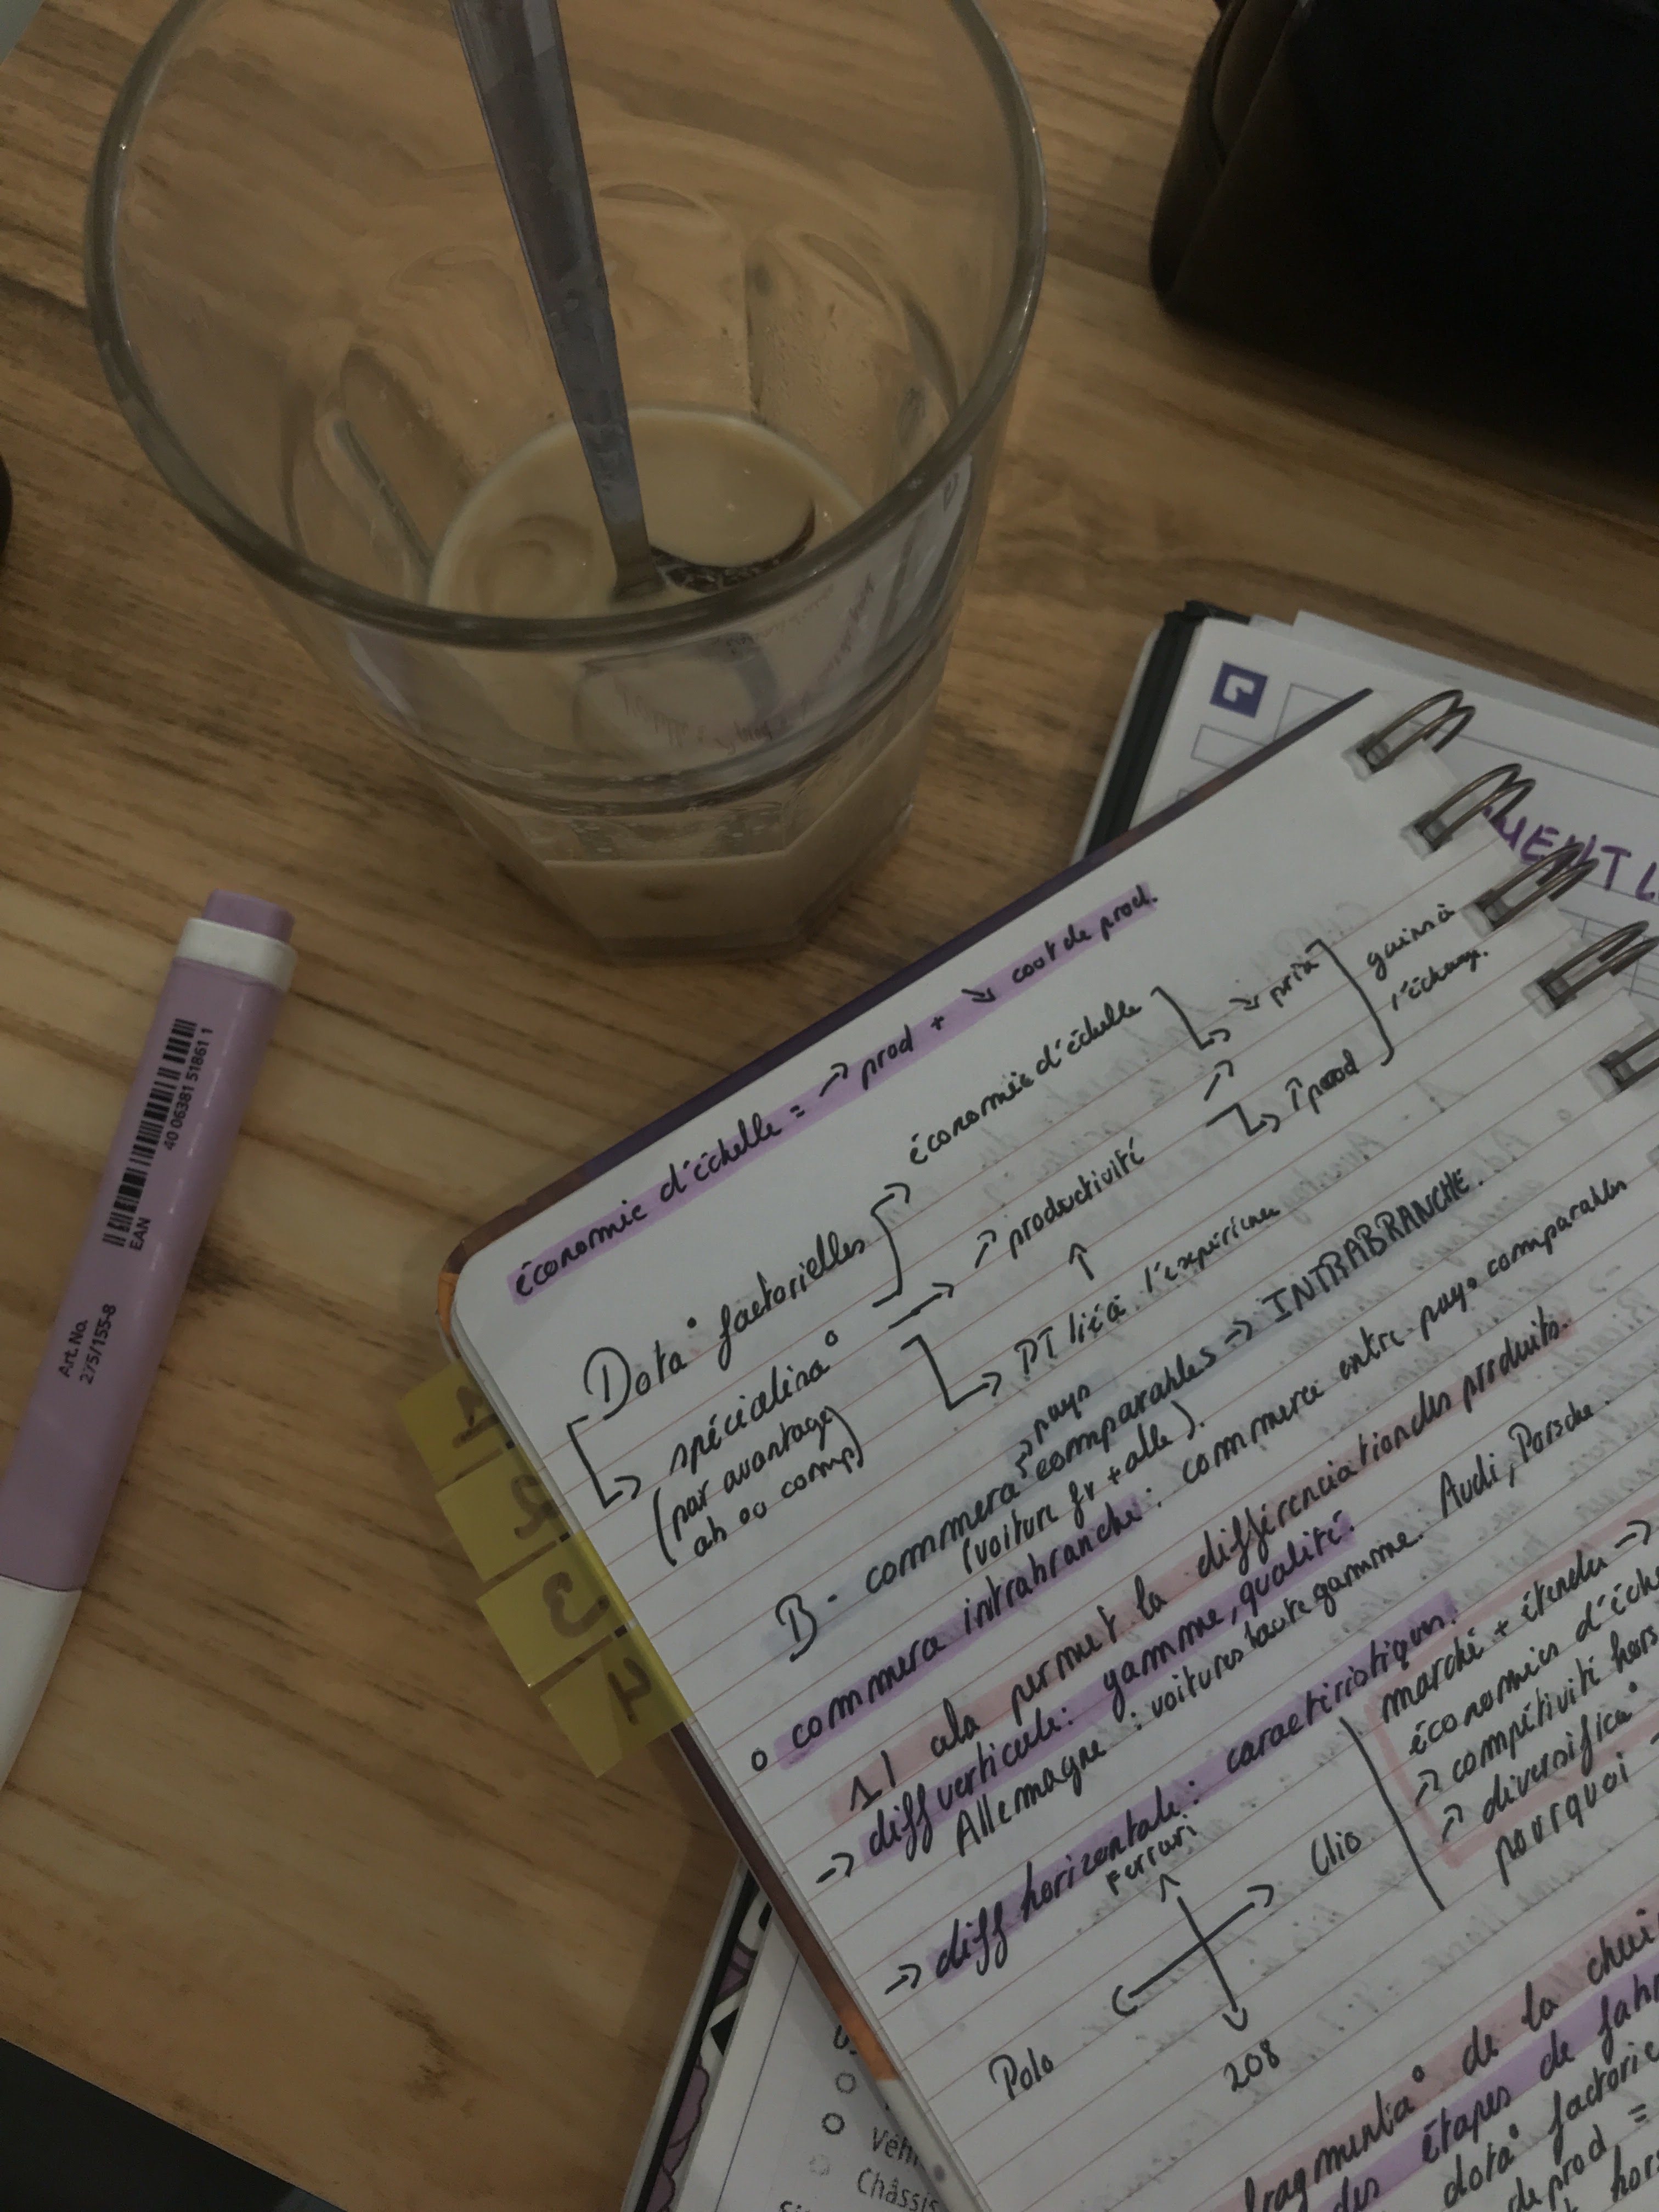 économie d'échelle = ↗ prod + ↘ cout de prod.
Dota° factorielles
économie d'échelle
↘ prix
gains à
l'échange.
↳ spécialisa°
(par avantage
ab ou comp)
→ ↗ productivité
↑ prod
↑
↳ PT lié à l'expérience
pays
B- commerce comparables → INTRABRANCHE.
(voiture fr + alle).
o commerce intrabranche: commerce entre pays comparables
1) cela permet la différenciation des produits.
→ diff verticale: gamme, qualité.
Allemagne: voitures haute gamme. Audi, Porsche.
→ diff horizontale: caractéristiques.
Ferrari
Clio
Polo
208
marché + étendu →
économies d'éche
↗ compétitivité hors
↗ diversifica°
pourquoi
fragmenta° de la
des étapes de fab
dota° factorie
de prod =
hors
MENT L
EAN
40 06381 51861 1
Art. No.
275/155-8
1
2
3
4
Véh
Châssis